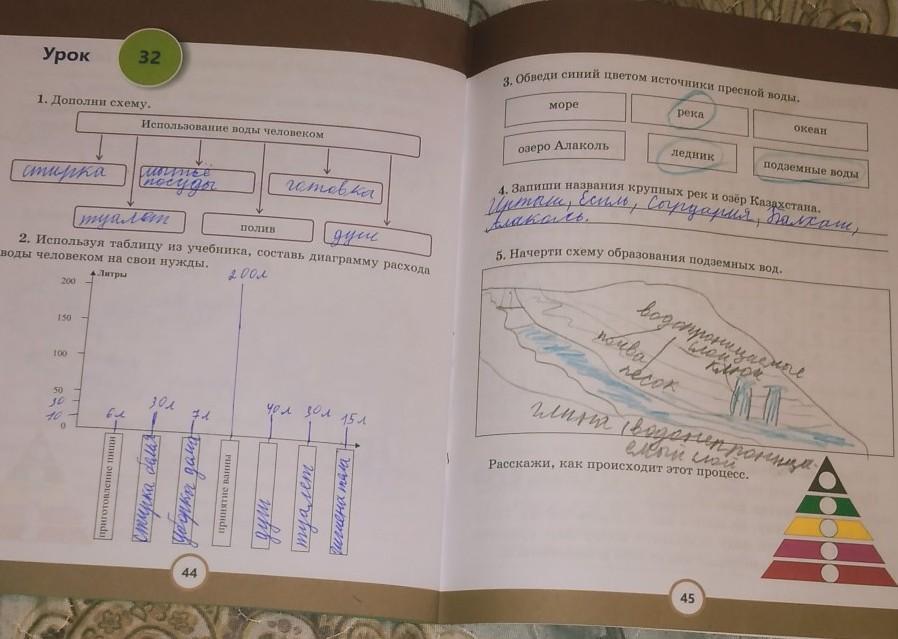 Урок 32
1. Дополни схему.
Использование воды человеком
стирка
мытьё
посуды
готовка
туалет
полив
душ
2. Используя таблицу из учебника, составь диаграмму расхода
воды человеком на свои нужды.
Литры
200
150
100
50
30
10
0
6л
30л
7л
200л
40л
30л
15л
приготовление пищи
стирка белья
уборка дома
принятие ванны
душ
туалет
гигиена тела
44
3. Обведи синий цветом источники пресной воды.
море
река
океан
озеро Алаколь
ледник
подземные воды
4. Запиши названия крупных рек и озёр Казахстана.
Иртыш, Есиль, Сырдария, Балхаш,
Алаколь.
5. Начерти схему образования подземных вод.
водопроницаемые
слои
почва
ключи
песок
глина (водонепроница-
емый слой
Расскажи, как происходит этот процесс.
45